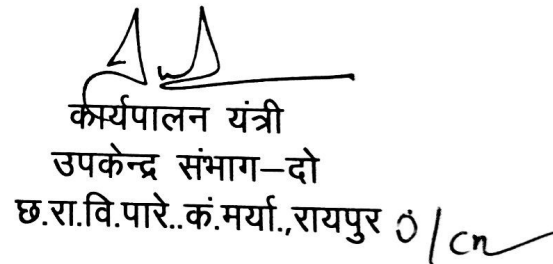 कार्यपालन यंत्री
उपकेन्द्र संभाग–दो
छ.रा.वि.पारे..कं.मर्या.,रायपुर